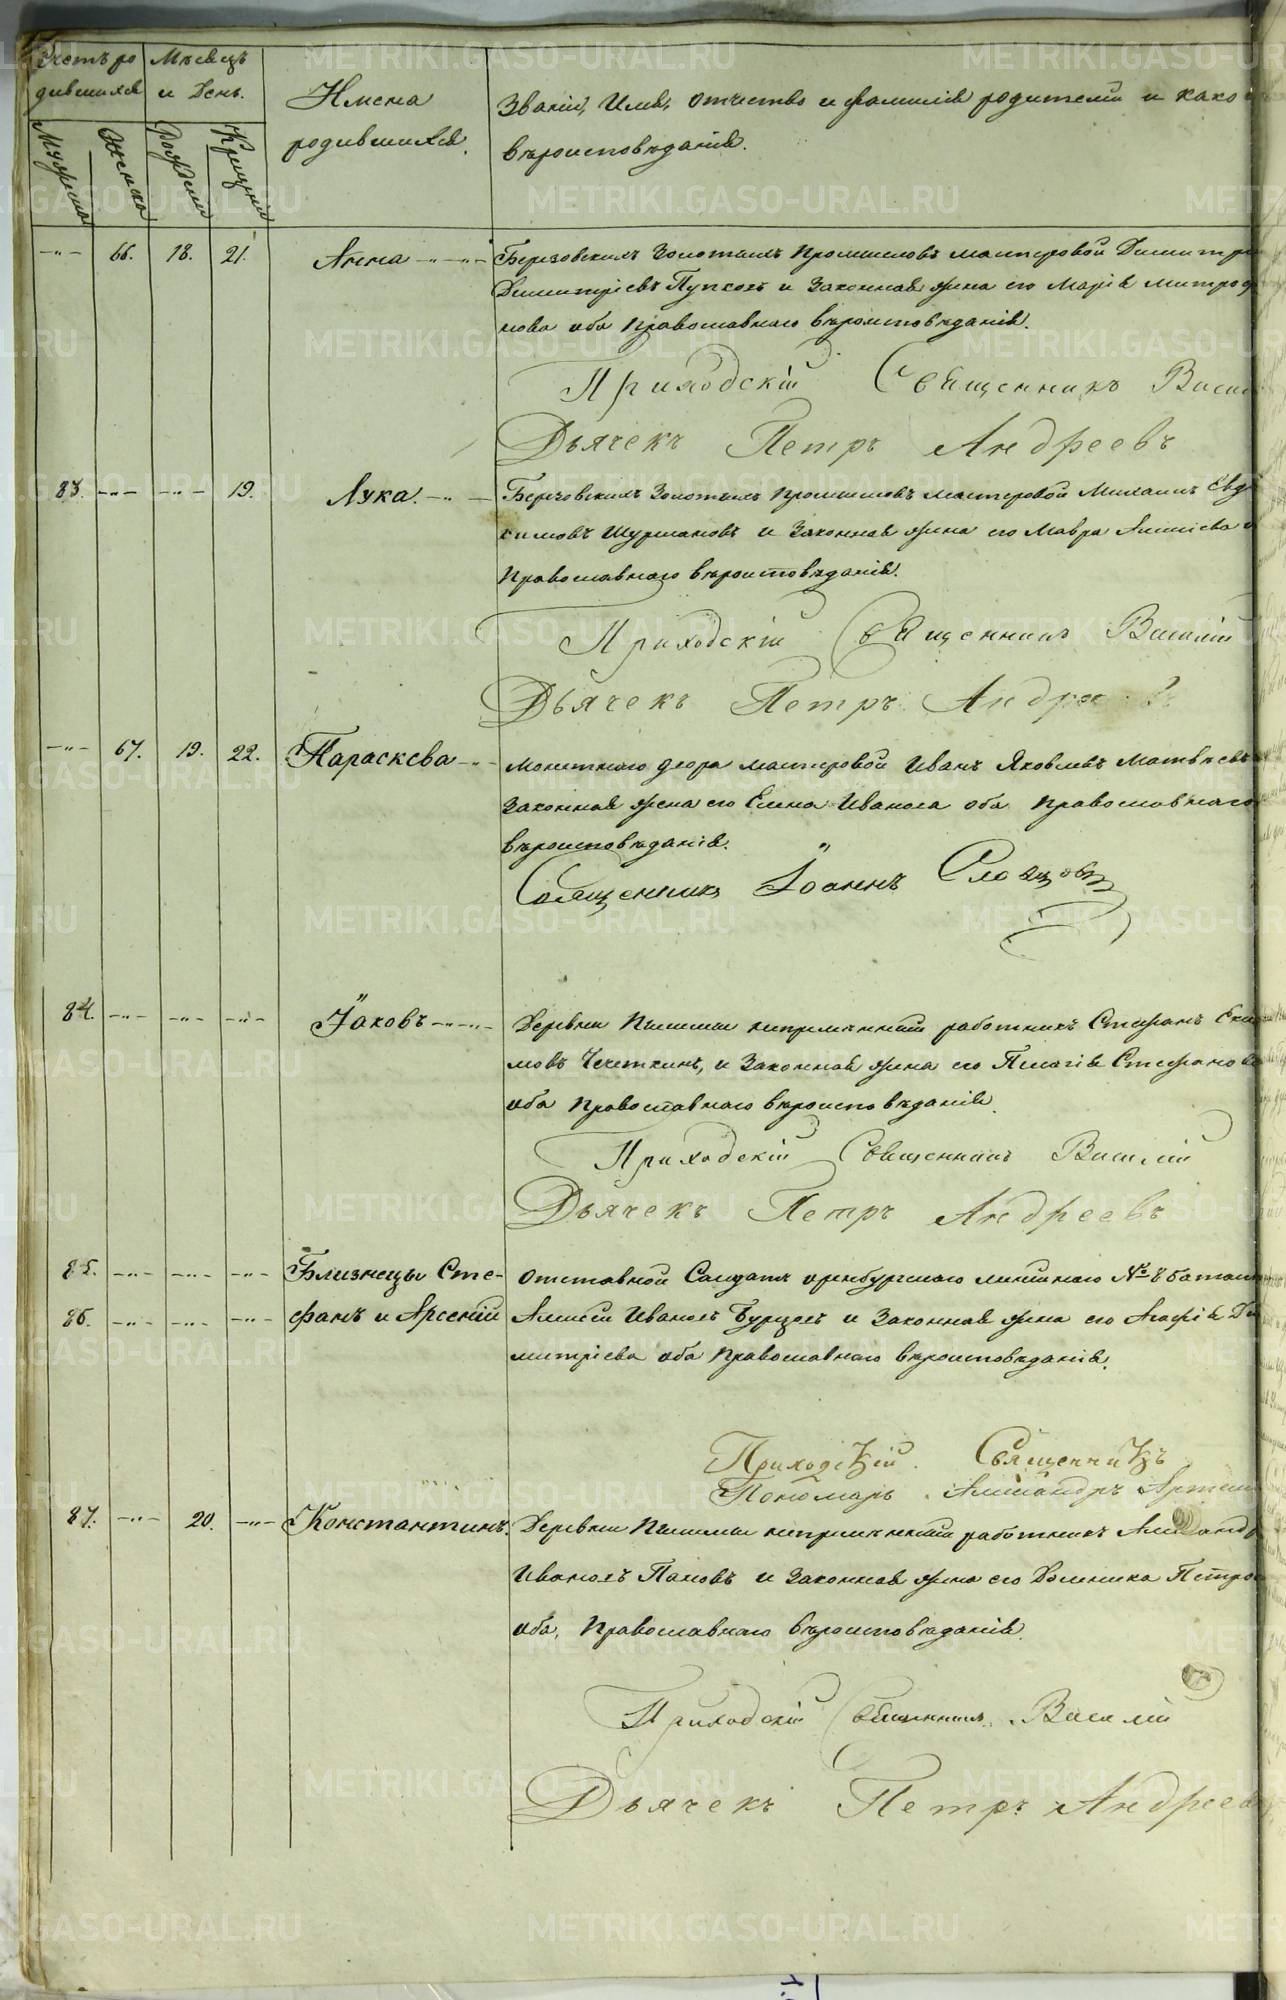 Счетъ ро Мѣсяцъ
дившихся и День.
Имена
родившихся.
Званіе, Имя, отчество и фамилія родителей и како
вѣроисповѣданія.
Мужеска Женска Рожденія Крещенія
-„- 66. 18. 21. Анна -„- -„- Березовскихъ Золотыхъ Промысловъ мастеровой Димитрі
Димитріевъ Пупковъ и Законная жена его Марія Митроф
нова оба Православнаго вѣроисповѣданія.
Приходскій Священникъ Васил
Дьячекъ Петръ Андреевъ
83. -„- -„- 19. Лука. -„- Березовскихъ Золотыхъ Промысловъ мастеровой Михаилъ Евд
кимовъ Шурмановъ и Законная жена его Мавра
Православнаго вѣроисповѣданія.
Приходскій Священникъ Василій
Дьячекъ Петръ Андреевъ
-„- 67. 19. 22. Параскева -„- Монетнаго двора мастеровой Иванъ Яковлевъ Матвѣевъ
Законная жена его Елена Иванова оба Православнаго
вѣроисповѣданія.
Священникъ Іоаннъ Словцовъ
84. -„- -„- -„- Іаковъ -„- -„- Деревни Пышмы непремѣнный работникъ Стефанъ Еки
мовъ Чечеткинъ, и Законная жена его Пелагія Стефанова
оба Православнаго вѣроисповѣданія.
Приходскій Священникъ Василій
Дьячекъ Петръ Андреевъ
85. -„- -„- -„- Близнецы Сте- Отставной Солдатъ оренбургскаго линейнаго № 8 батал
86. -„- -„- -„- фанъ и Арсеній Алексѣй Ивановъ Бурцовъ и Законная жена его Агафія Ди
митріева оба Православнаго вѣроисповѣданія.
Приходскій Священникъ
Пономарь Александръ Артем
87. -„- 20. -„- Константинъ. Деревни Пышмы непремѣнный работникъ Александр
Ивановъ Пановъ и Законная жена его Домника Петров
оба, Православнаго вѣроисповѣданія.
Приходскій Священникъ Василій
Дьячекъ Петръ Андреев
METRIKI.GASO-URAL.RU